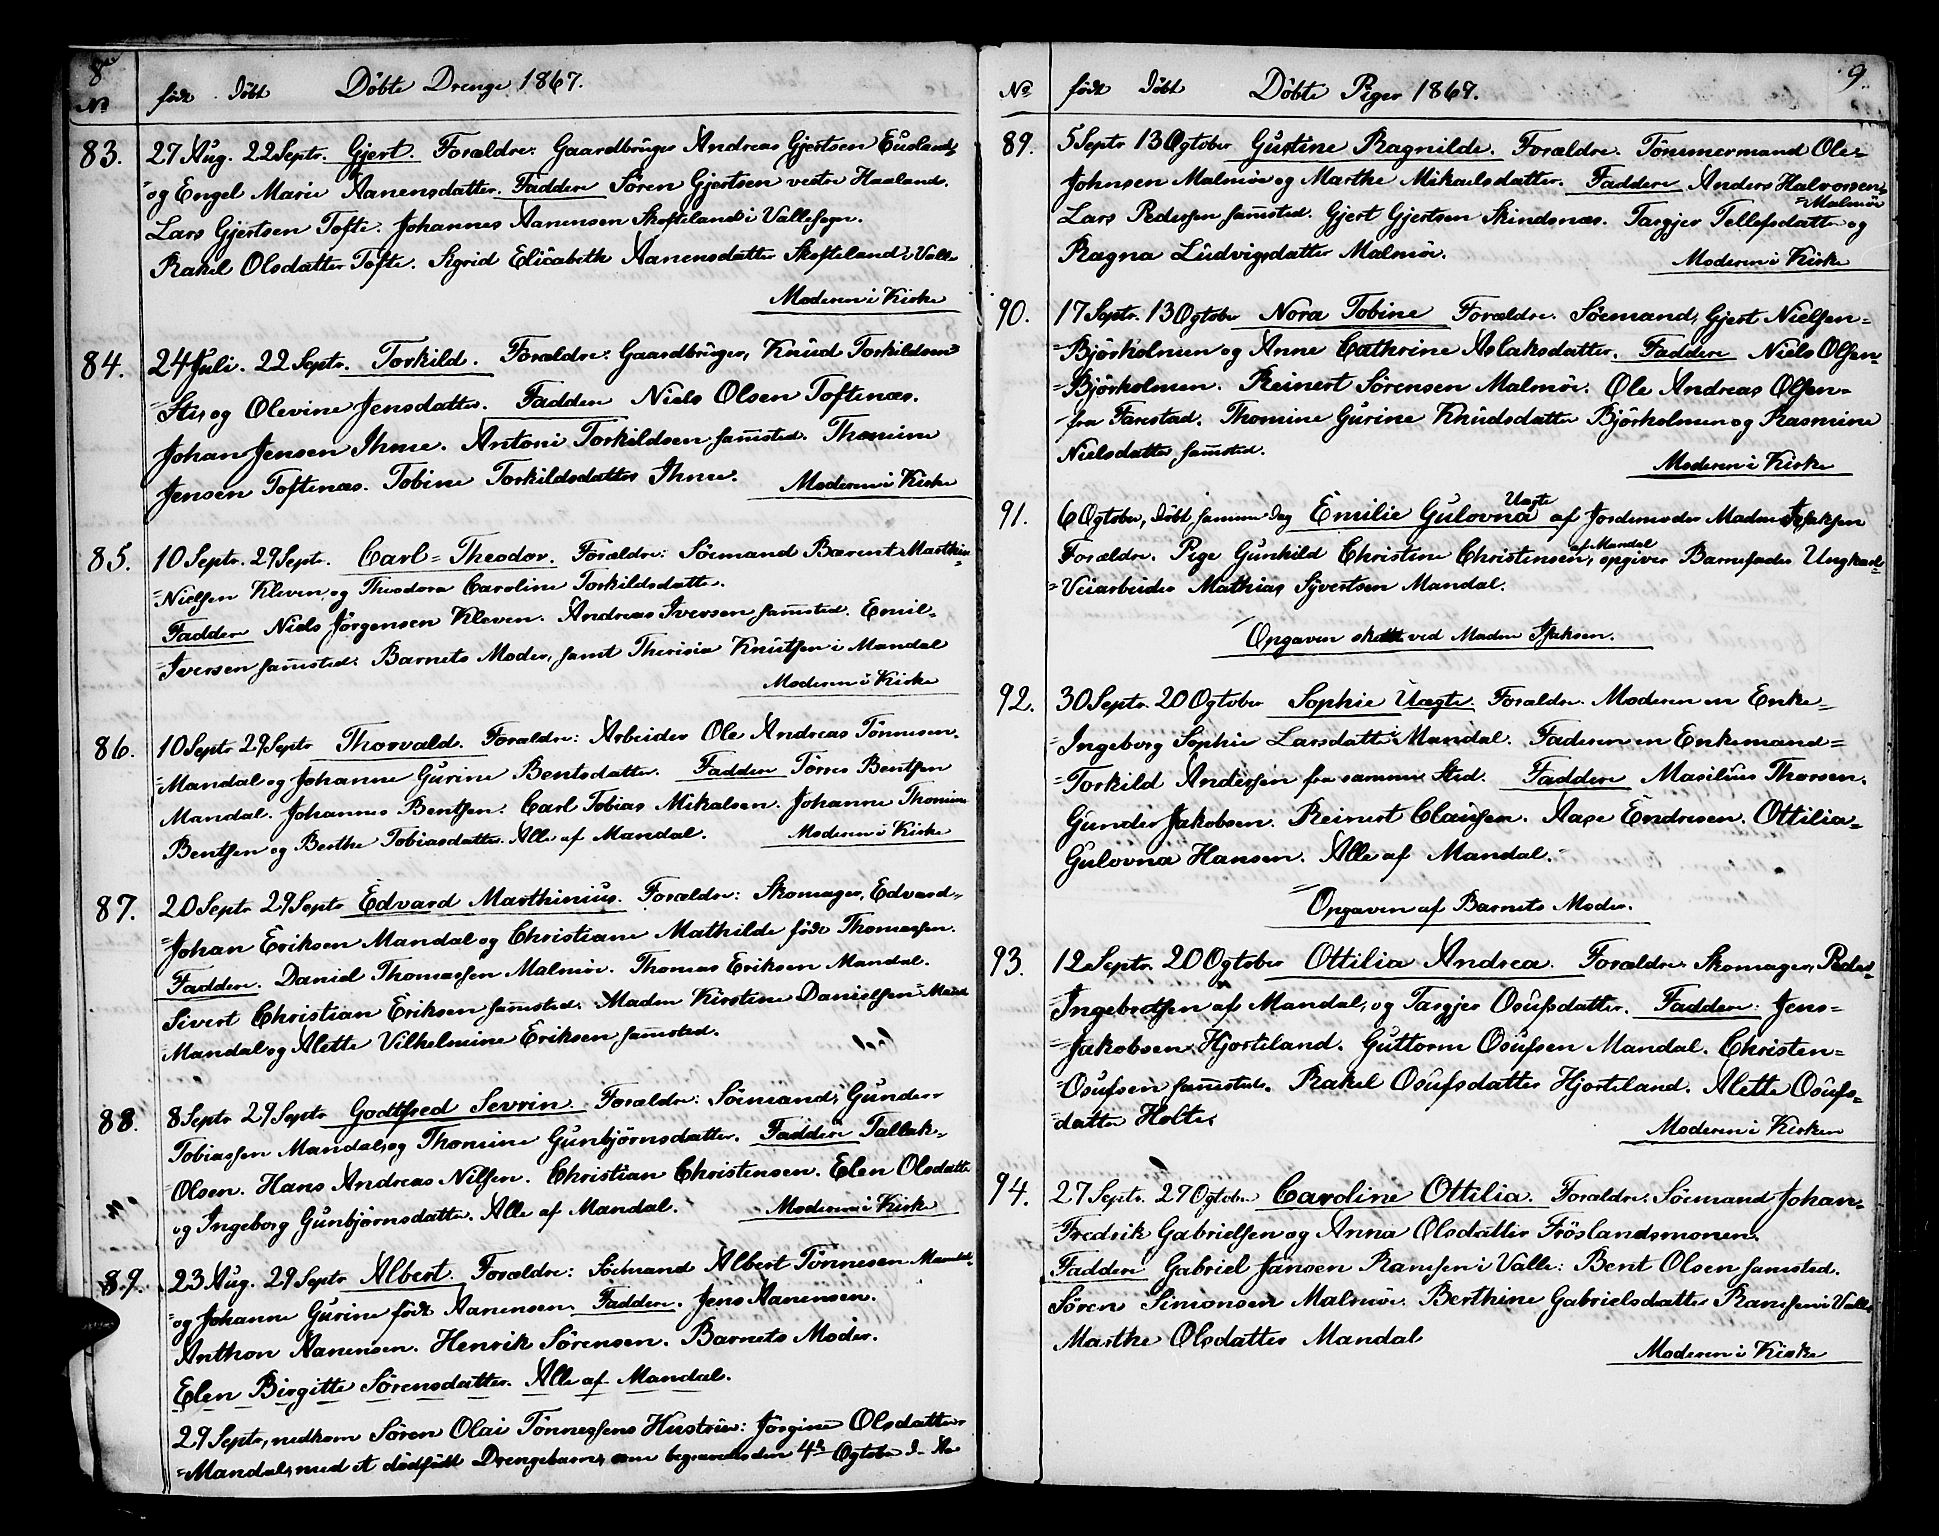 8
No født Døbt Døbte Drenge 1867.
83. 27 Aug. 22 Septr. Gjert. Forældre: Gaardbruger Andreas Gjertsen Eusland,
og Engel Marie Aanensdatter. Faddere Sören Gjertsen vestre Haaland.
Lars Gjertsen Tofte. Johannes Aanensen Skofteland i Vallesogn.
Rakel Olsdatter Tofte. Sigrid Elisabeth Aanensdatter Skofteland i Valle
Moderen i Kirke
84. 24 Juli. 22 Septr. Torkild. Forældre: Gaardbruger, Knud Torkildsen
Stu, og Olevine Jensdatter. Faddere Niels Olsen Toftenæs.
Johan Jensen Ihme. Antoni Torkildsen samsted. Thomine
Jensen Toftenæs. Tobine Torkildsdatter Ihme.
Moderen i Kirke
85. 10 Septr. 29 Septr. Carl=Theodor. Forældre: Söemand Barent Marthin=
=Nielsen Kleven, og Theodora Caroline Torkildsdatter.
Faddere Niels Jörgensen Kleven. Andreas Iversen samsted. Emil=
=Iversen samsted. Barnets Moder, samt Therisia Knutsen i Mandal
Moderen i Kirke
86. 10 Septr 29 Septr Thorvald. Forældre: Arbeider Ole Andreas Tönnesen.
=Mandal og Johanne Gurine Bentsdatter. Faddere Törres Bentsen
Mandal. Johannes Bentsen. Carl Tobias Mikalsen. Johanne Thomine
Bentsen og Berthe Tobiasdatter. Alle af Mandal.
Moderen i Kirke
87. 20 Septr 29 Septr Edvard Marthinius. Forældre: Skomager, Edvard=
=Johan Eriksen Mandal og Christiane Mathilde födt Thomassen.
Faddere. Daniel Thomassen Malmöe. Thomas Eriksen Mandal.
Sivert Christian Eriksen samsted. Madm Kirstine Danielsen
Mandal og Alette Vilhelmine Eriksen samsted.
88. 8 Septr 29 Septr Godtfred Sevrin. Forældre: Söemand, Gunder
Tobiassen Mandal, og Thomine Gunbjörnsdatter. Faddere Tallak=
Olsen. Hans Andreas Nilsen. Christian Christensen. Elen Olsdatter
og Ingeborg Gunbjörnsdatter. Alle af Mandal.
Moderen i Kirke
89. 23 Aug. 29 Septr Albert. Forældre: Söemand Albert Tönnesen Mandal.
og Johanne Gurine födt Aanensen. Faddere. Jens Aanensen.
Anthon Aanensen. Henrik Sörensen. Barnets Moder.
Elen Birgitte Sörensdatter. Alle af Mandal.
29 Septr, nedkom Sören Olai Tönnessens Hustrue: Jörgine Olsdatter
=Mandal, med et dödfödt Drengebarn, som begravedes den 4de Ogtober d. Aa
9.
No født Døbt Döbte Piger 1867.
89. 5 Septr 13 Ogtober Gustine Ragnilde. Forældre. Tömmermand Ole=
Johnsen Malmöe og Marthe Mikaelsdatter. Faddere Anders Halvorsen,
=Malmöe
Lars Pedersen samsted. Gjert Gjertsen Skindsnæs. Targjer Tellefsdatter og
Ragna Ludvigsdatter Malmöe.
Moderen i Kirke
90. 17 Septr. 13 Ogtober Nora Tobine Forældre. Söemand, Gjert Nielsen=
=Björkolmen og Anne Cathrine Aslaksdatter. Faddere Niels Olsen
=Björholmen. Reinert Sörensen Malmöe. Ole Andreas Olsen=
=fra Farestad. Thomine Gurine Knudsdatter Björholmen og Rasmine
Nielsdatter samsted.
Moderen i Kirke
91. 6 Ogtober, döbt samme Dag Emilie Gulovna Uægte af Jordemoder Madm Isaksen
Forældre. Pige Gunhild Christine Christensen, af Mandal opgiver Barnefader Ungkarl=
=Veiarbeider Mathias Syvertsen Mandal.
Opgaven skeet ved Madm Isaksen.
92. 30 Septr. 20 Ogtober Sophie Uægte. Forældre. Moderen en Enke=
=Ingeborg Sophie Larsdatter Mandal. Faderen en Enkemand=
=Torkild Andersen fra samme Sted. Faddere Masilius Thorsen.
Gunder Jakobsen. Reinert Clausen. Aase Endresen. Ottilia=
Gulovna Hansen. Alle af Mandal.
Opgaven af Barnets Moder.
93. 12 Septr. 20 Ogtober Ottilia Andrea. Forældre. Skomager, Peder=
=Ingebretsen af Mandal, og Targjer Osufsdatter. Faddere: Jens=
=Jakobsen Hjorteland. Guttorm Osufsen Mandal. Christen=
=Osufsen samsteds. Rakel Osufsdatter Hjorteland. Alette Osufs=
=datter Holte.
Moderen i Kirken
94. 27 Septr. 27 Ogtober Caroline Ottilia. Forældre. Söemand Johan=
=Fredrik Gabrielsen og Anna Olsdatter Fröslandsmonen.
Faddere Gabriel Jansen Ramsen i Valle: Bent Olsen samsted.
Sören Simonsen Malmöe. Berthine Gabrielsdatter Ramsen i Valle
Marthe Olsdatter Mandal
Moderen i Kirke